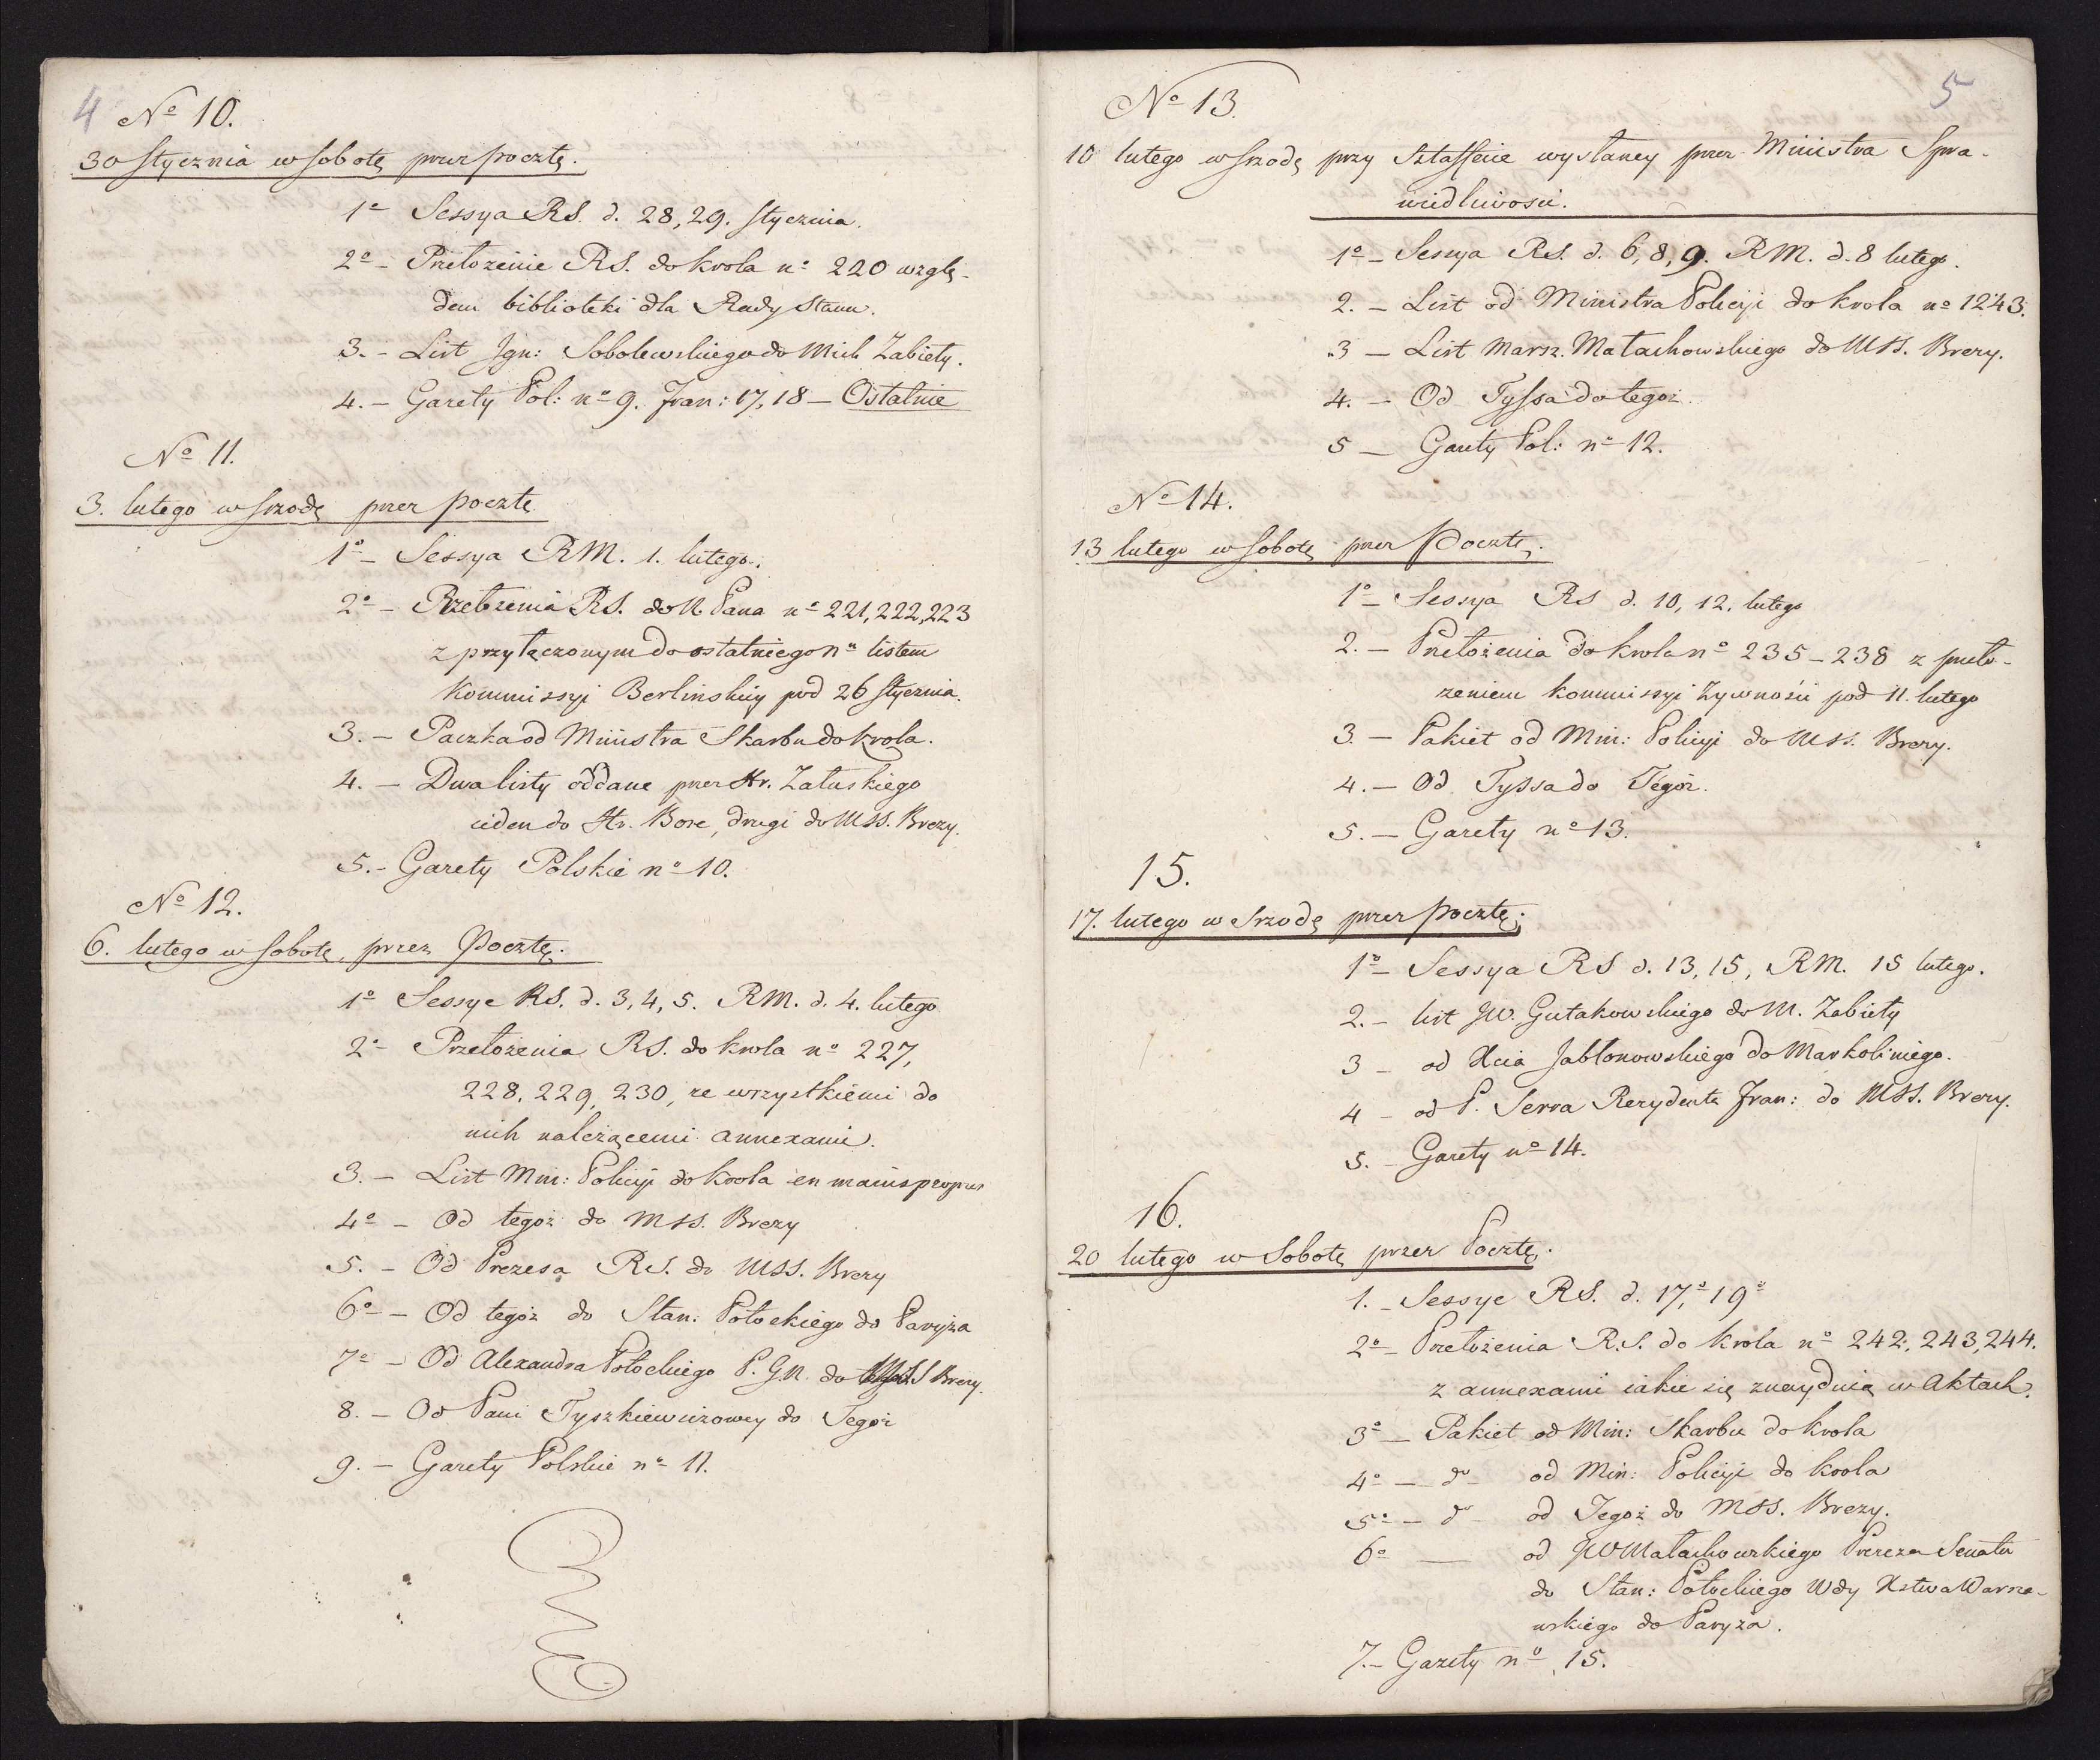 4 Nº 10.
30 Stycznia w Sobotę przez pocztę.
1º Sessya RS. d. 28, 29. Stycznia.
2º – Przełożenie RS. do Krola nº 220 wzglę-
dem biblioteki dla Rady Stanu.
3. – List Ign: Sobolewskiego do Mich Zabiełły.
4. – Gazety Pol: nº 9. Fran: 17, 18 – Ostatnie
Nº 11.
3. lutego w Srzodę przez pocztę
1º – Sessya RM. 1. lutego.
2º – Przełozenia RS. do N. Pana nº 221, 222, 223
z przyłączonym do ostatniego nu listem
Kommissyi Berlinskiey pod 26 Stycznia.
3. – Paczka od Ministra Skarbu do Krola.
4. – Dwa listy oddane przez Hr. Załuskiego
ieden do Hr. Bose, drugi do MSS. Brezy.
5. – Gazety Polskie nº 10.
Nº 12.
6. lutego w Sobotę, przez Pocztę.
1º Sessye RS. d. 3, 4, 5. RM. d. 4. lutego
2º – Przełożenia RS. do Krola nº 227,
228, 229, 230, ze wszystkiemi do
nich należącemi annexami.
3. – List Min: Policyi do Krola en mains propres
4º – Od tegoż do MSS. Brezy
5. – Od Prezesa RS. do MSS. Brezy
6º – Od tegoż do Stan: Potockiego do Paryża
7º – Od Alexandra Potockiego P. G.N. do MSS Brezy.
8. – Od Pani Tyszkiewiczowey do Tegoż
9. – Gazety Polskie nº 11.
5
Nº 13.
10 lutego w Srzodę przy Sztaffecie wysłaney przez Ministra Spra-
wiedliwosci.
1º – Sessya RS. d. 6, 8, 9. RM. d. 8 lutego.
2. – List od Ministra Policyi do Krola nº 1243.
3 – List Marsz. Małachowskiego do MSS. Brezy.
4. – Od Tyssa do tegoż.
5 – Gazety Pol: nº 12.
Nº 14.
13 lutego w Sobotę przez Pocztę.
1º – Sessya RS d. 10, 12. lutego
2. – Przełożenia do Krola nº 235 – 238 z przeło-
zeniem Kommissyi Zywnośći pod 11. lutego
3. – Pakiet od Min: Policyi do MSS. Brezy.
4. – Od Tyssa do Tegoż.
5. – Gazety nº 13.
15.
17. lutego w Srzodę przez pocztę.
1º – Sessya RS d. 13, 15, RM. 15 lutego.
2. – list JW. Gutakowskiego do M. Zabiełły
3 – od Xcia Jabłonowskiego do Markoliniego.
4 – od P. Serra Rezydenta Fran: do MSS. Brezy.
5. – Gazety nº 14.
16.
20 lutego w Sobotę przez Pocztę.
1. – Sessye RS. d. 17º, 19º
2º – Przełożenia R.S. do Krola nº 242, 243, 244.
z annexami iakie się znayduią w Aktach.
3º – Pakiet od Min: Skarbu do Krola
4º – dº – od Min: Policyi do Krola
5º – dº – od Tegoż do MSS. Brezy.
6º – od JW Małachowskiego Prezeza Senatu
do Stan: Potockiego Wdy Xstwa Warsza-
wskiego do Paryża.
7. – Gazety nº 15.